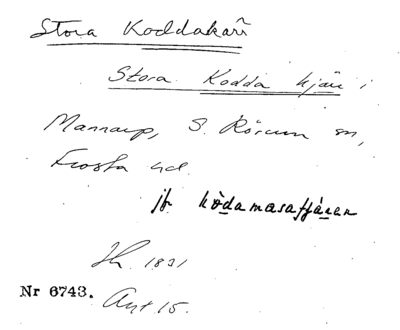 Stora Koddakärr
Stora Kodda kjärr i
Mannarp, S. Rörum sn,
Frosta hd.
jfr kòdamasaſjáran
Jk. 1831
Nr 6743. Avt. 15.